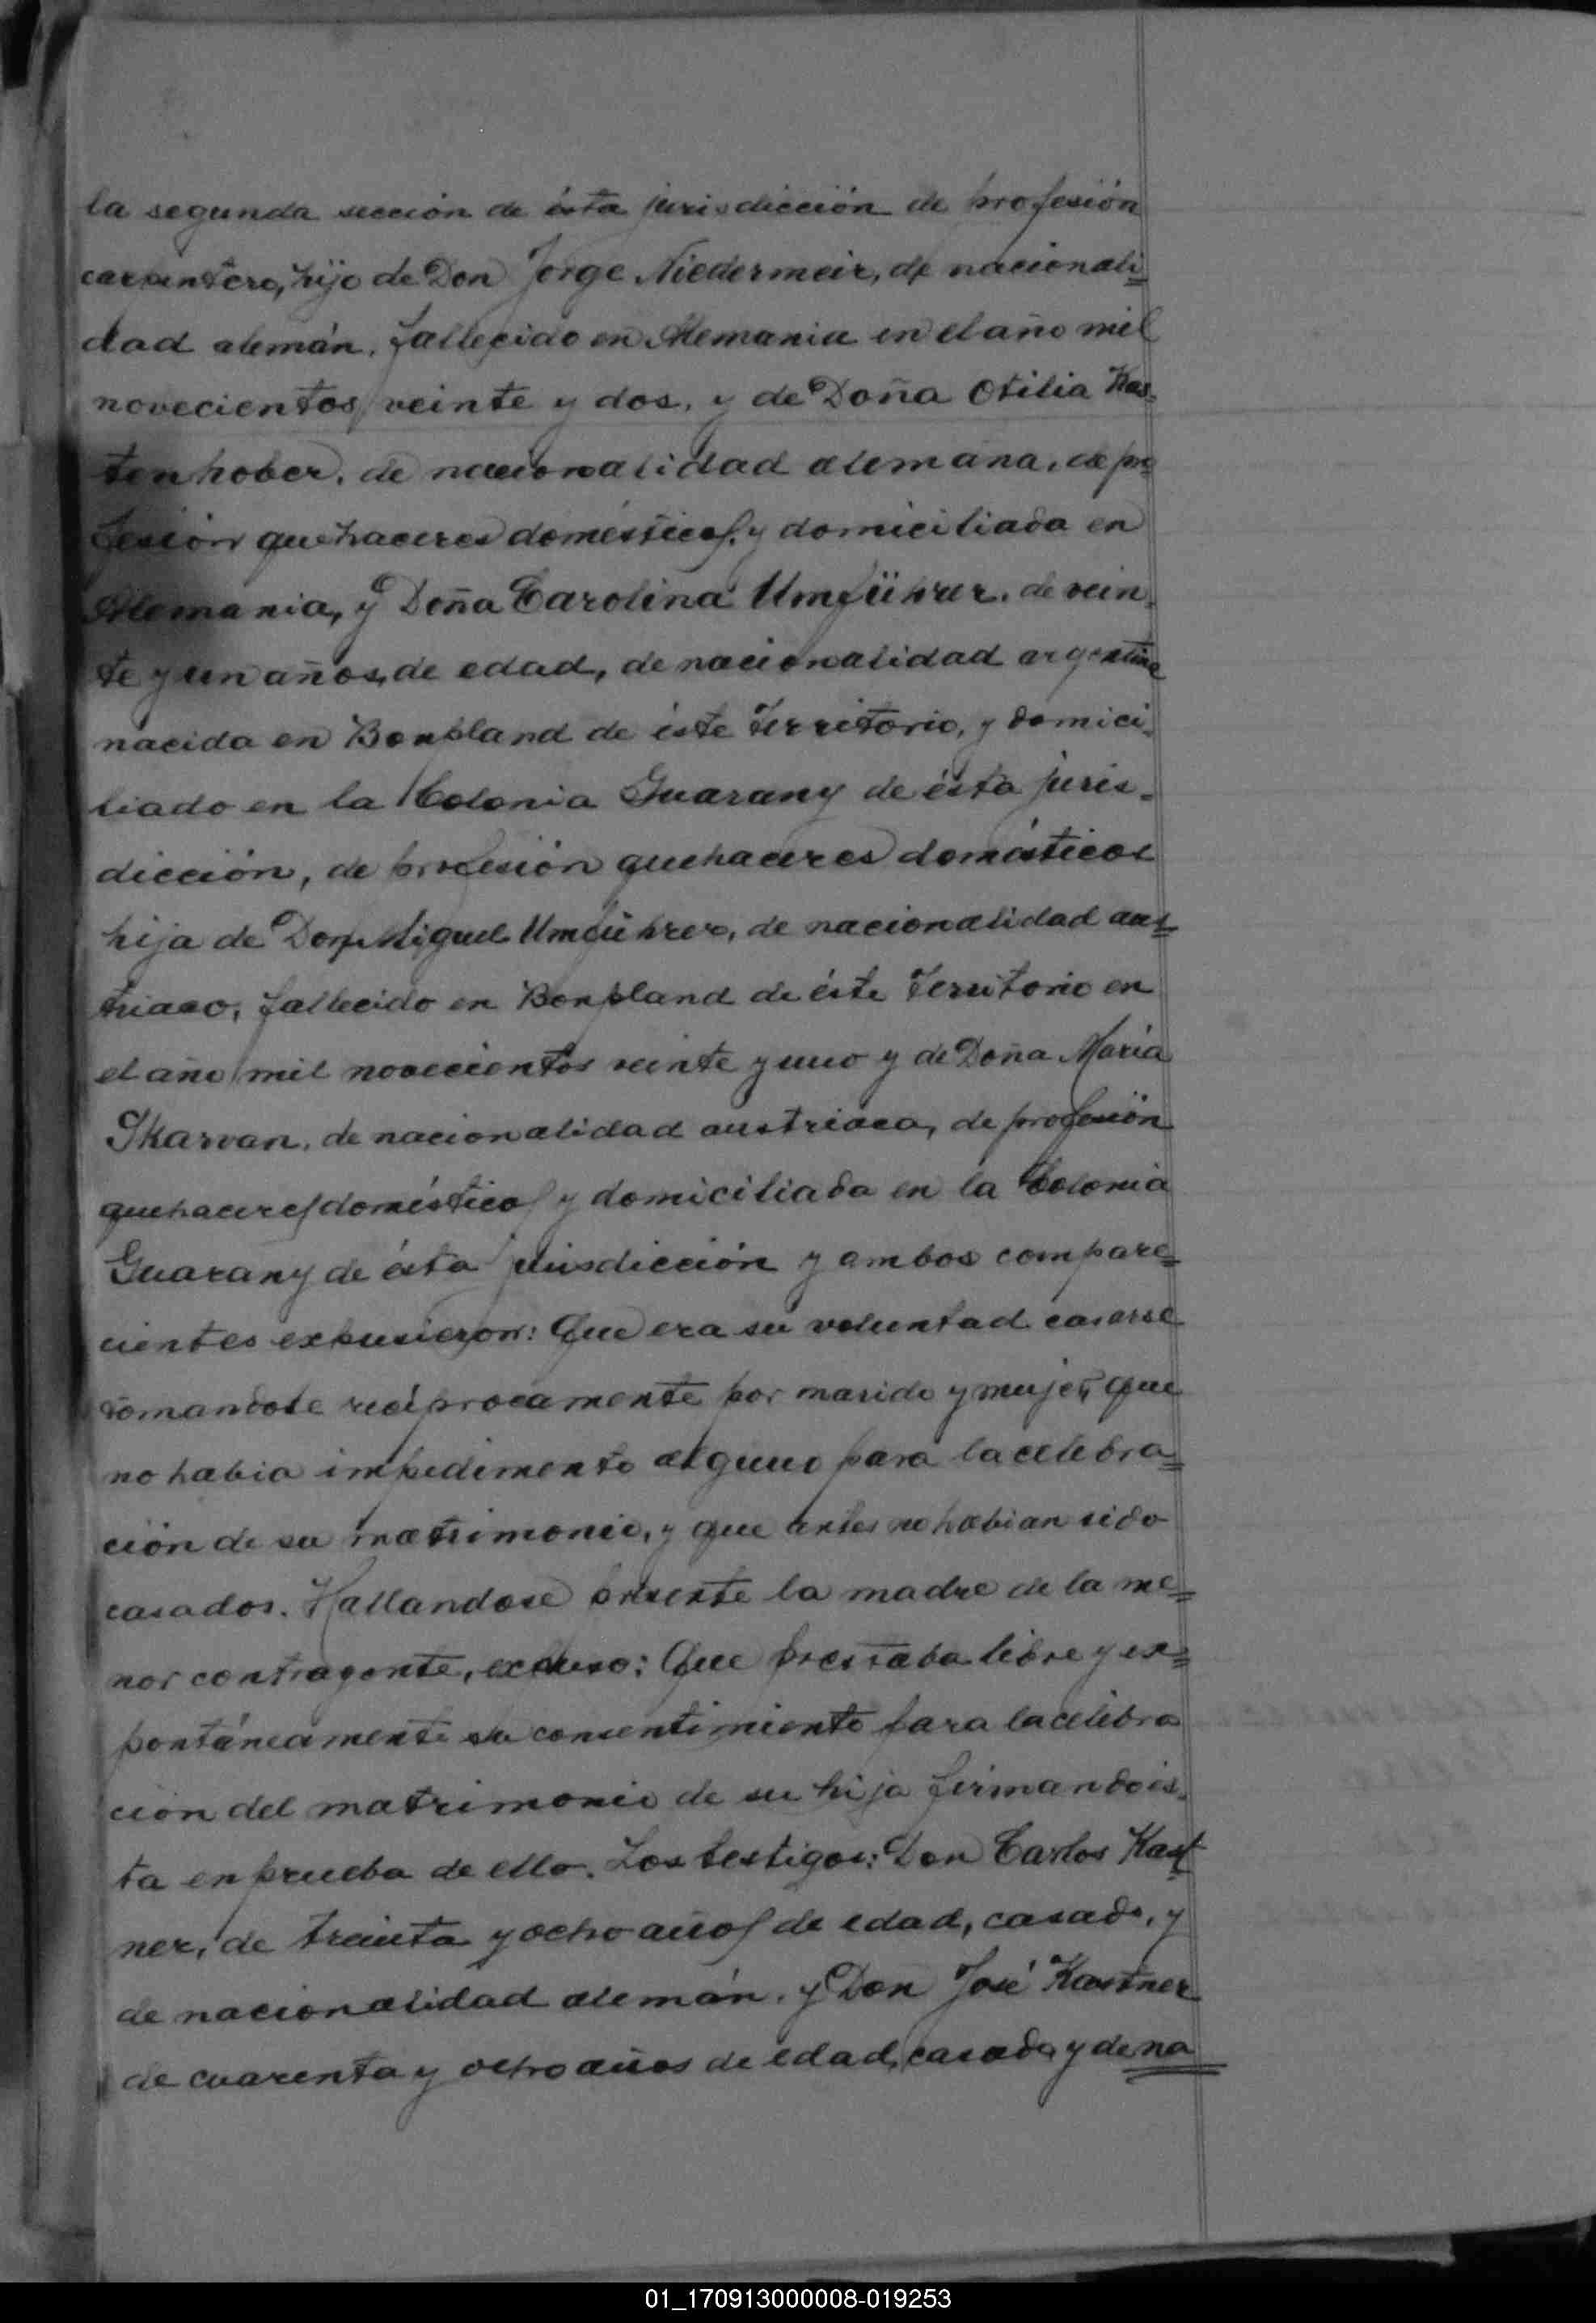 la segunda sección de ésta jurisdicción de profesión
carpintero, hijo de Don Jorge Niedermeir, de nacionali=
dad alemán, fallecido en Alemania en el año mil
novecientos veinte y dos, y de Doña Otilia Kas=
tenhober, de nacionalidad alemana, de pro
fesión quehaceres domésticos, y domiciliada en
Alemania, y Doña Carolina Umführer, de vein=
te y un años, de edad, de nacionalidad argentina
nacida en Bonpland de éste Territorio, y domici=
liado en la Colonia Guarany de ésta juris=
dicción, de profesión quehaceres domésticos
hija de Don Miguel Umführer, de nacionalidad aus=
triaco, fallecido en Bonpland de éste Territorio en
el año mil novecientos veinte y uno y de Doña María
Skarvan, de nacionalidad austriaca, de profesión
quehaceres domésticos y domiciliada en la Colonia
Guarany de ésta jurisdicción y ambos compare=
cientes expusieron: Que era su voluntad casarse
tomandose recíprocamente por marido y mujer, que
no habia impedimento alguno para la celebra=
ción de su matrimonio, y que antes no habian sido
casados. Hallandose presente la madre de la me=
nor contrayente, expuso: Que prestaba libre y es=
pontáneamente su consentimiento para la celebra
ción del matrimonio de su hija firmando és=
ta en prueba de ello. Los testigos: Don Carlos Kast=
ner, de treinta y ocho años de edad, casado, y
de nacionalidad alemán, y Don José Kastner
de cuarenta y ocho años de edad, casado, y de na
01_170913000008-019253